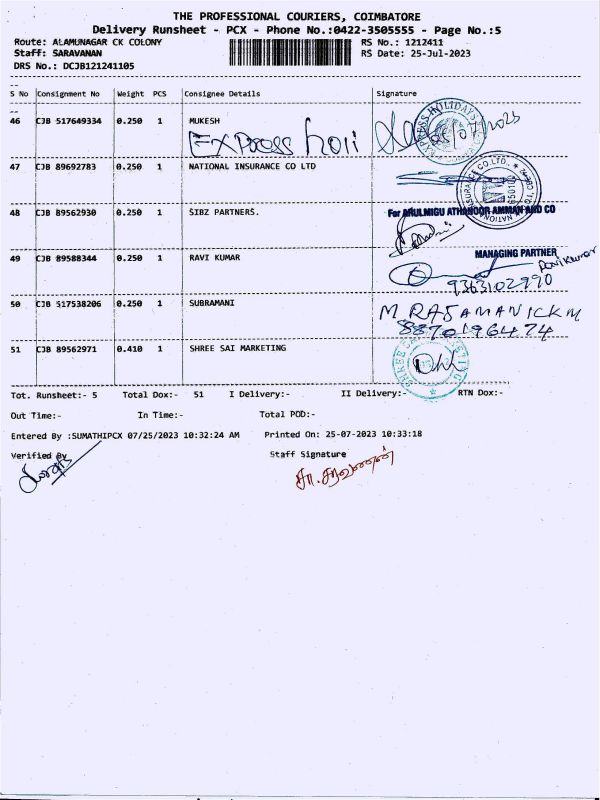 THE PROFESSIONAL COURIERS, COIMBATORE
Delivery Runsheet - PCX - Phone No.:0422-3505555 - Page No.:5
Route: ALAMUNAGAR CK COLONY RS No.: 1212411
Staff: SARAVANAN RS Date: 25-Jul-2023
DRS No.: DCJB121241105
S No Consignment No Weight PCS Consignee Details Signature
46 CJB 517649334 0.250 1 MUKESH
Express holi
47 CJB 89692783 0.250 1 NATIONAL INSURANCE CO LTD
48 CJB 89562930 0.250 1 SIBZ PARTNERS. For ARULMIGU ATHANOOR AMMAN AND CO
49 CJB 89588344 0.250 1 RAVI KUMAR MANAGING PARTNER
Ravikumar
9363102990
50 CJB 517538206 0.250 1 SUBRAMANI M RAJAMANICKM
8870196474
51 CJB 89562971 0.410 1 SHREE SAI MARKETING
Tot. Runsheet:- 5 Total Dox:- 51 I Delivery:- II Delivery:- RTN Dox:-
Out Time:- In Time:- Total POD:-
Entered By :SUMATHIPCX 07/25/2023 10:32:24 AM Printed On: 25-07-2023 10:33:18
Verified By Staff Signature
சா. சரவணன்